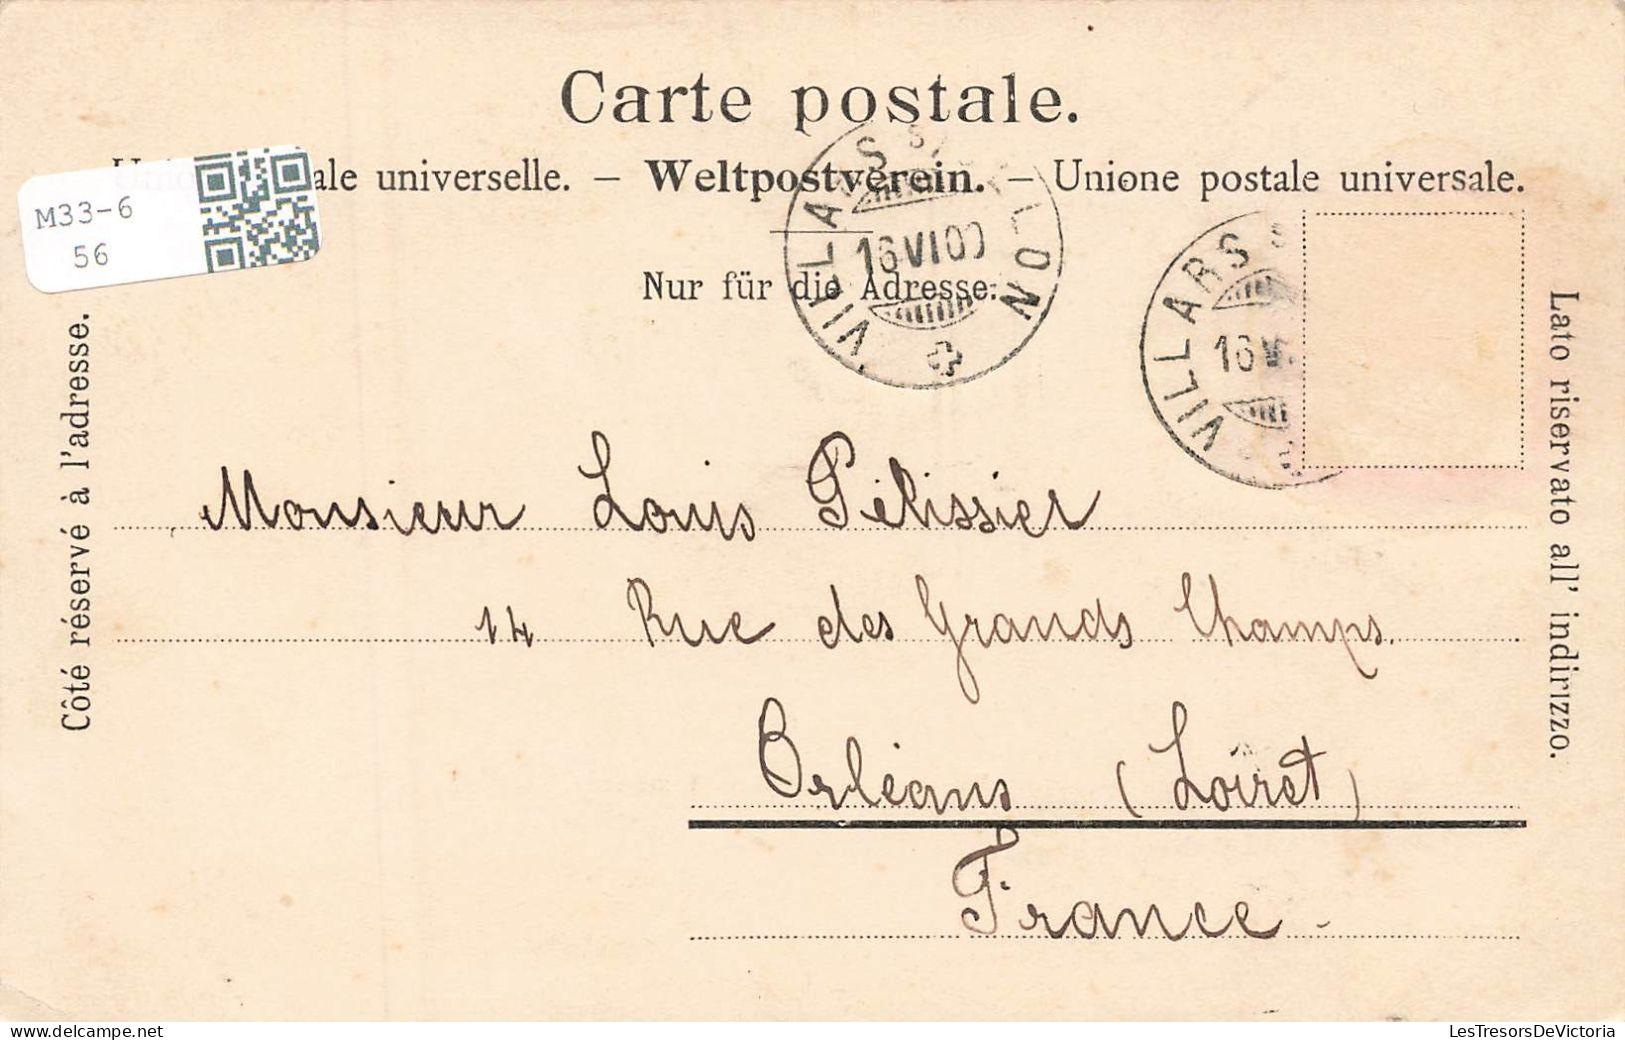 Carte postale.
ale universelle. – Weltpostverein. – Unione postale universale.
M33-6
56
Nur für die Adresse:
VILLARS S/ OLLON
16 VI 00
VILLARS
16 VI
Côté réservé à l'adresse.
Lato riservato all' indirizzo.
Monsieur Louis Pélissier
14 Rue des Grands Champs.
Orléans (Loiret)
France.
LesTresorsDeVictoria